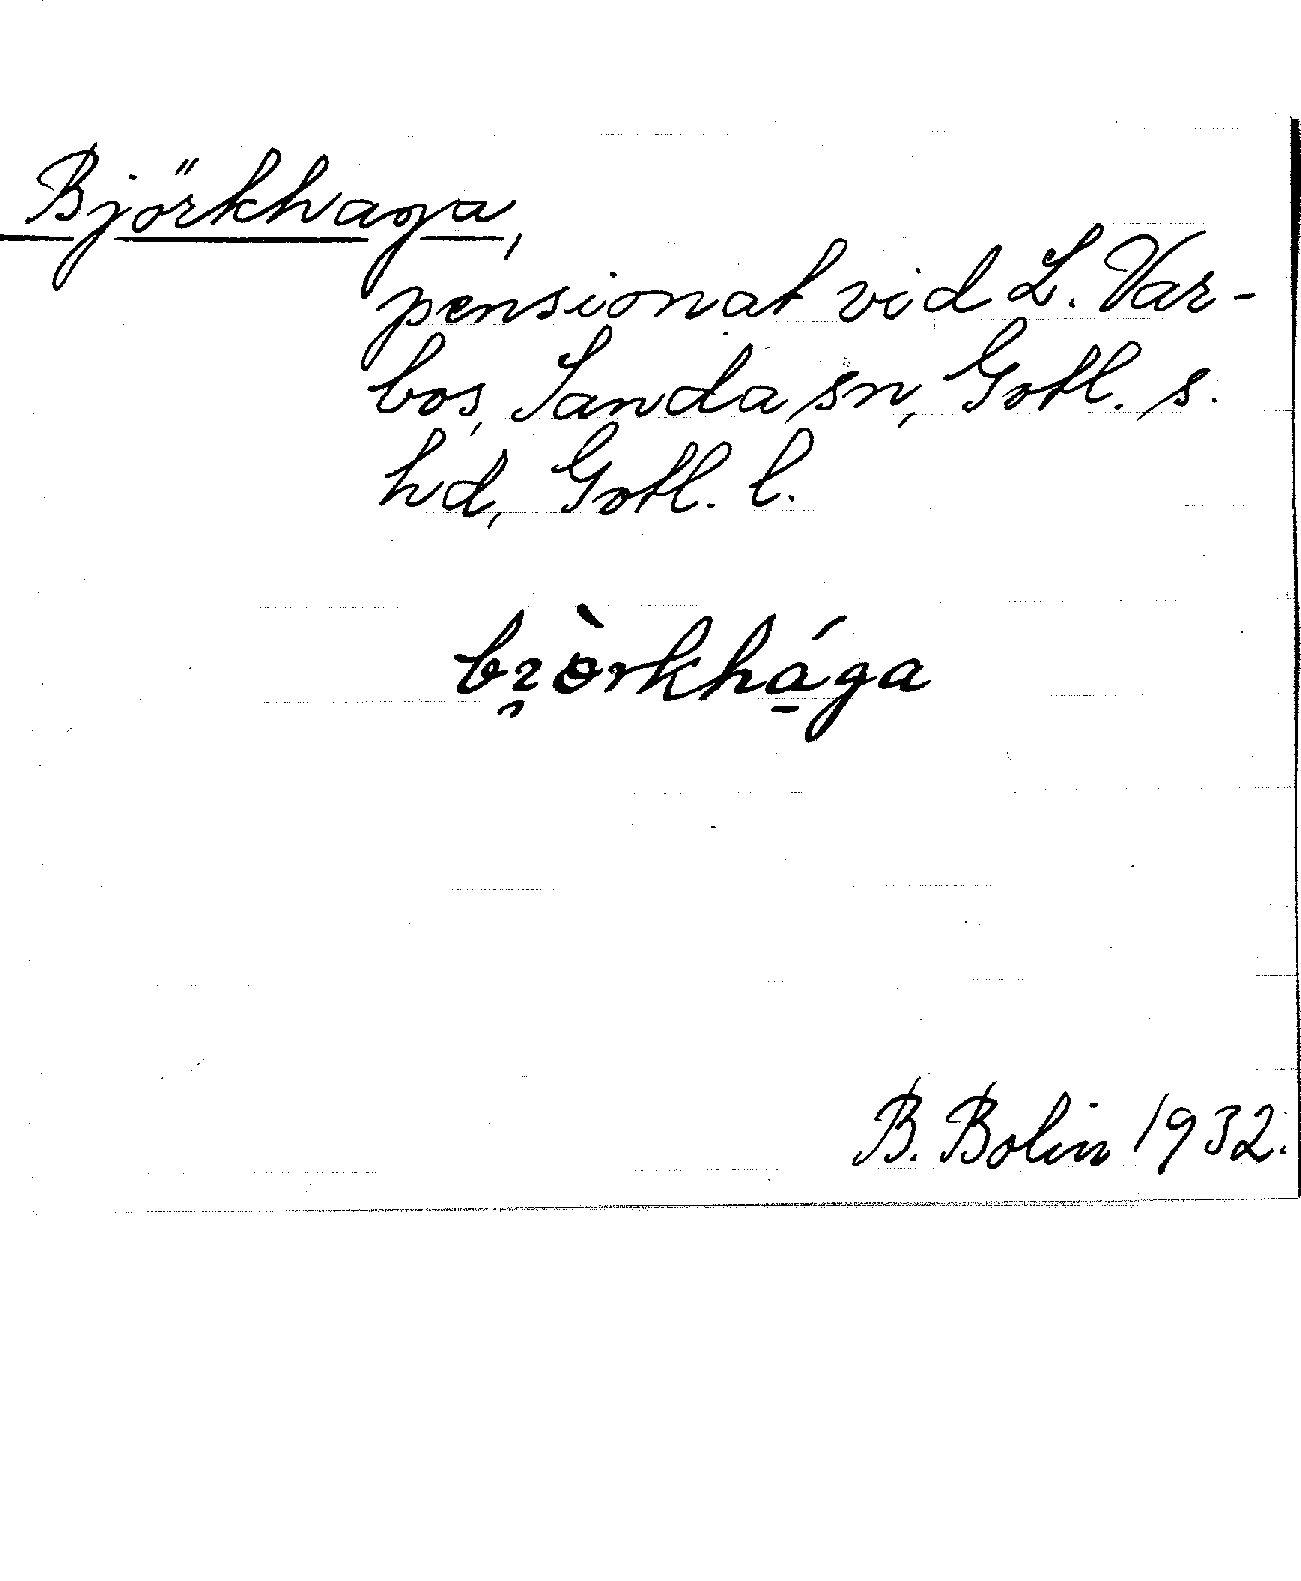 Björkhaga,
pensionat vid L. Var-
bos, Sanda sn, Gotl. s.
hd, Gotl. l.
bɿ̯òrkhá̱ga
B. Bolin 1932.